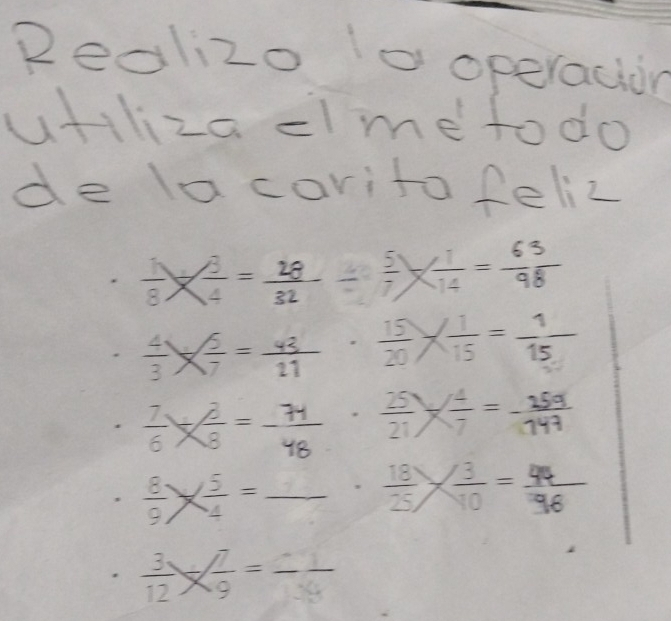 Realizo la operación
utiliza el método
de la carita feliz
· 1/8 + 3/4 = 28/32 - 5/7 + 1/14 = 63/98
· 4/3 + 5/7 = 43/21 · 15/20 + 1/15 = 1/15
· 7/6 + 3/8 = 74/48 · 25/21 + 4/7 = 259/147
· 8/9 + 5/4 = · 18/25 + 3/10 = 44/96
· 3/12 + 7/9 =